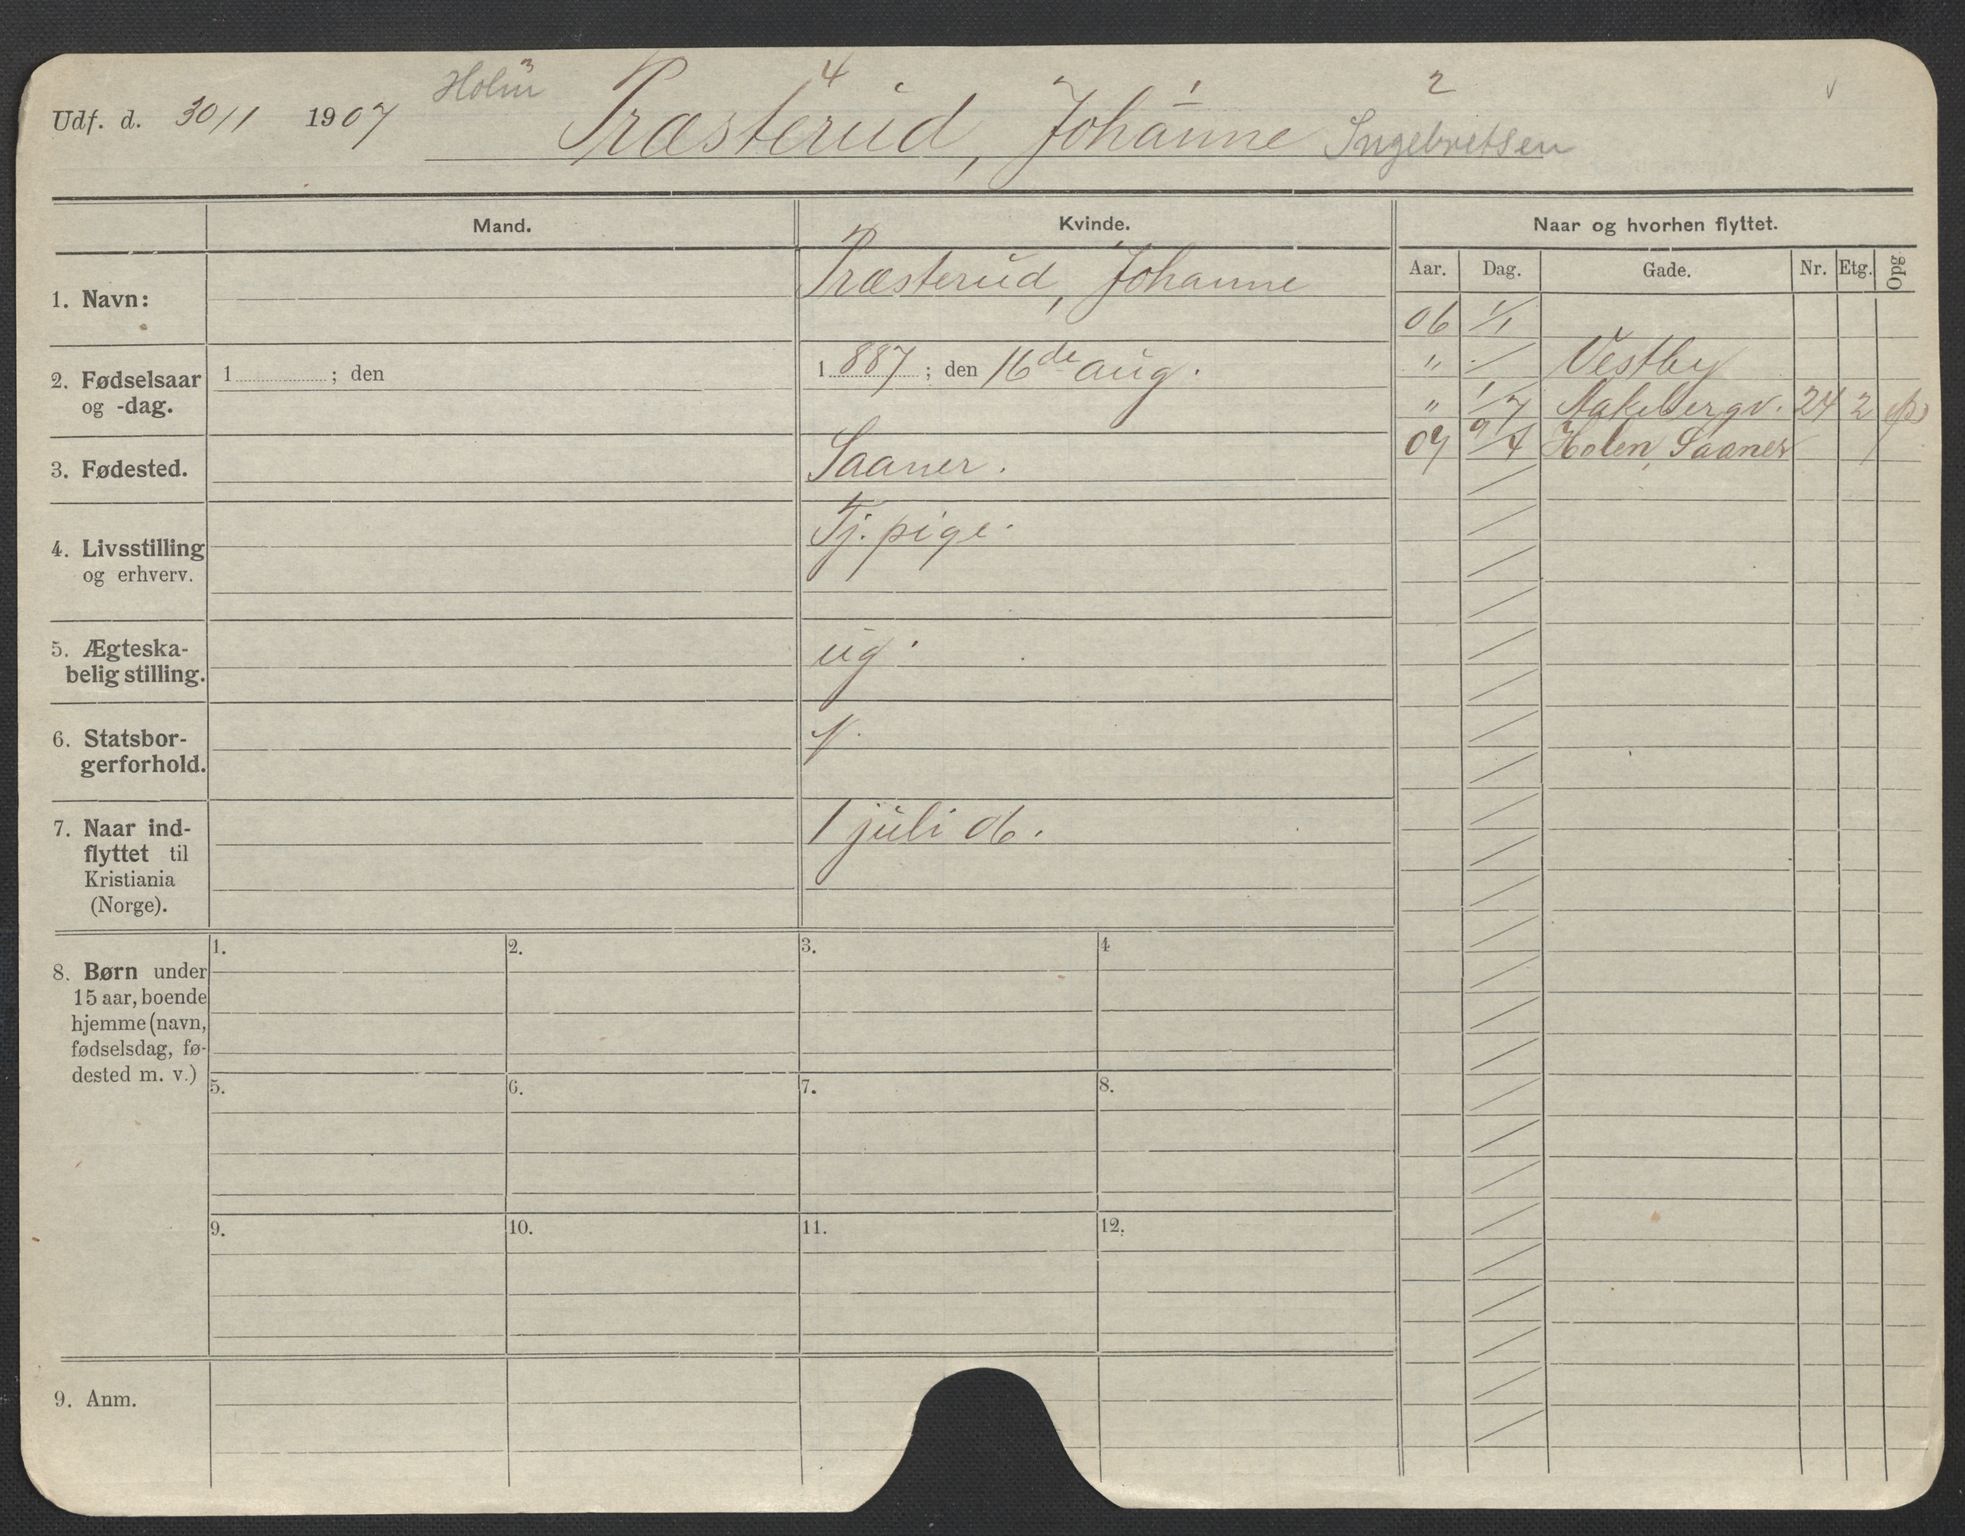 Holm 3 4 1 2
Udf. d. 30/1 1907 Præsterud, Johanne Ingebretsen
Mand. Kvinde. Naar og hvorhen flyttet.
Aar. Dag. Gade. Nr. Etg. Opg
1. Navn: Præsterud, Johanne
06 1/1
" / Vestby
" 1/7 Aakebergv. 24 2
07 9/4 Holen, Saaner
2. Fødselsaar og -dag. 1 ; den 1 887 ; den 16de aug.
3. Fødested. Saaner.
4. Livsstilling og erhverv. Tj. pige.
5. Ægteska-
belig stilling. ug.
6. Statsbor-
gerforhold. N.
7. Naar ind-
flyttet til
Kristiania
(Norge). 1 juli 06.
8. Børn under
15 aar, boende
hjemme (navn,
fødselsdag, fø-
dested m. v.)
1. 2. 3. 4
5. 6. 7. 8.
9. 10. 11. 12.
9. Anm.